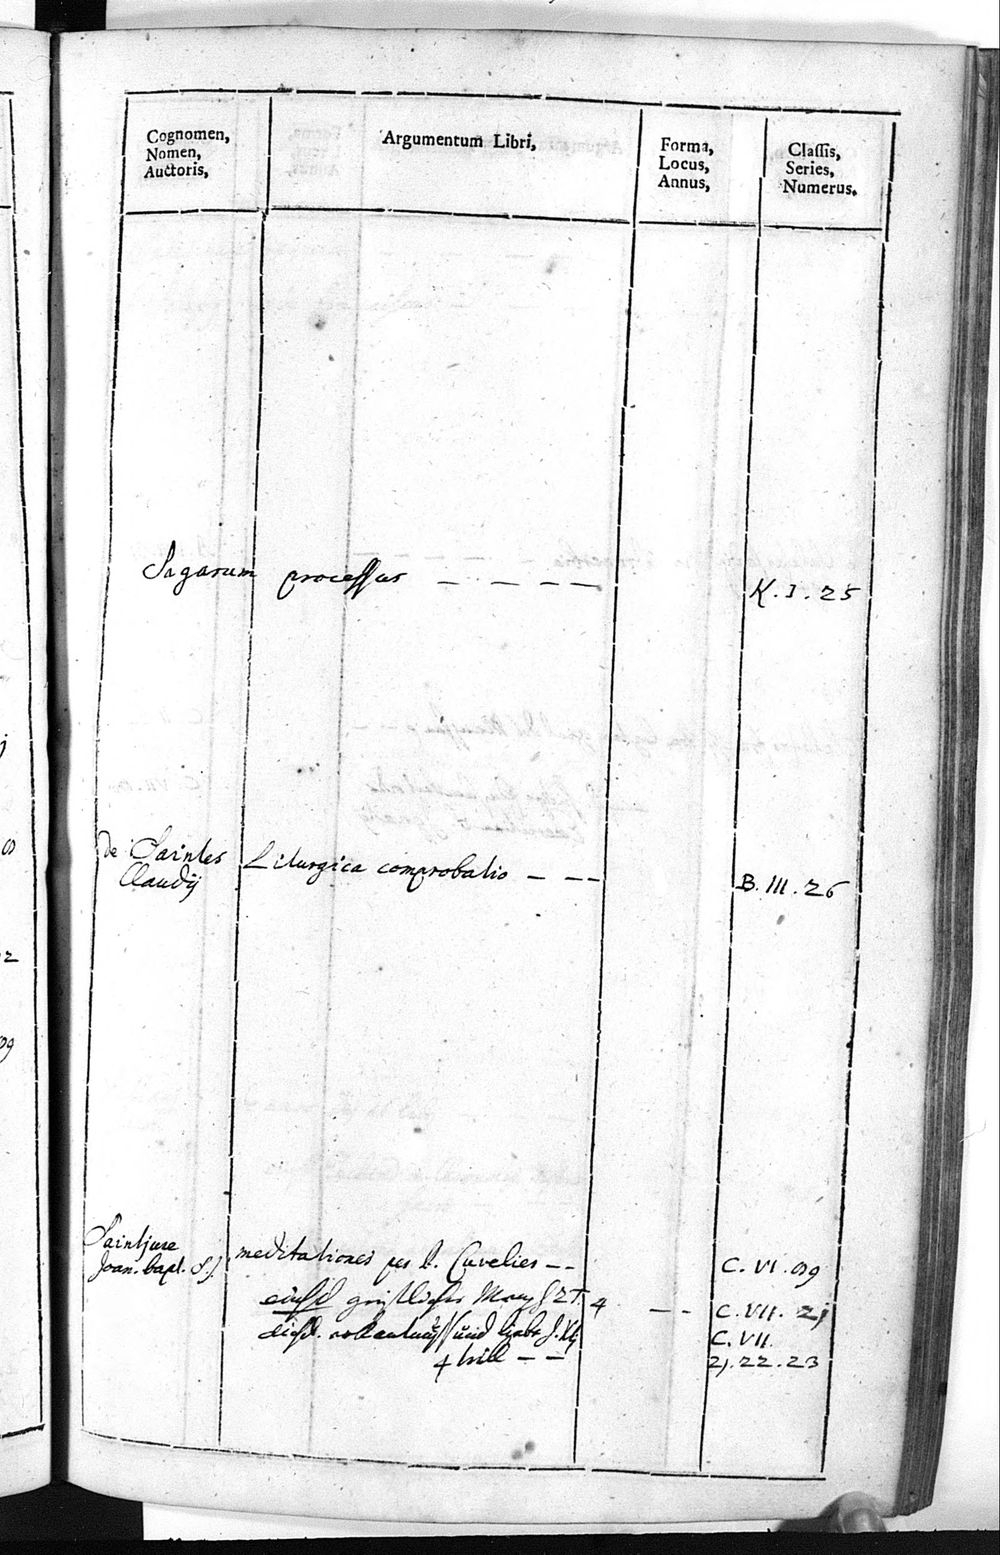 Cognomen, Nomen, Auctoris,
Argumentum Libri,
Forma, Locus, Annus,
Classis, Series, Numerus.
Sagarum processus — — — — K. I. 25
de Saintes Liturgica comprobatio — — — B. III. 26
Claudij
Saintjure
Joan. bapt. S.J. meditationes per Cuvelier — — C. VI. 09
geistlicher 2 T. 4 — — C. VII. 21
und C. VII.
4 — — 21. 22. 23